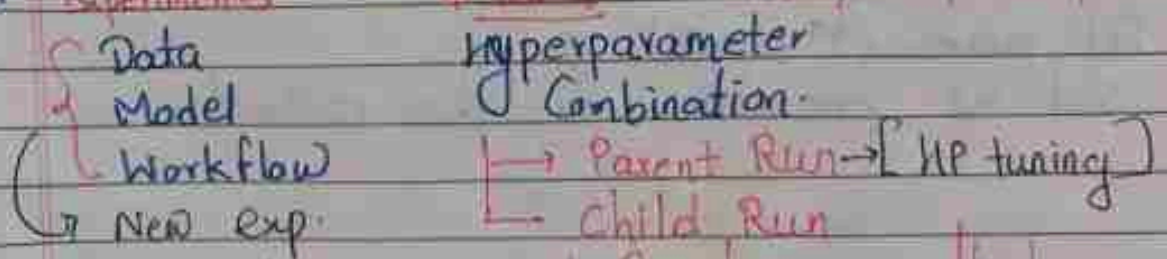 Experiments
Data
Model
Workflow
New exp.
Hyperparameter
Conbination.
Parent Run→[HP tuning]
Child Run